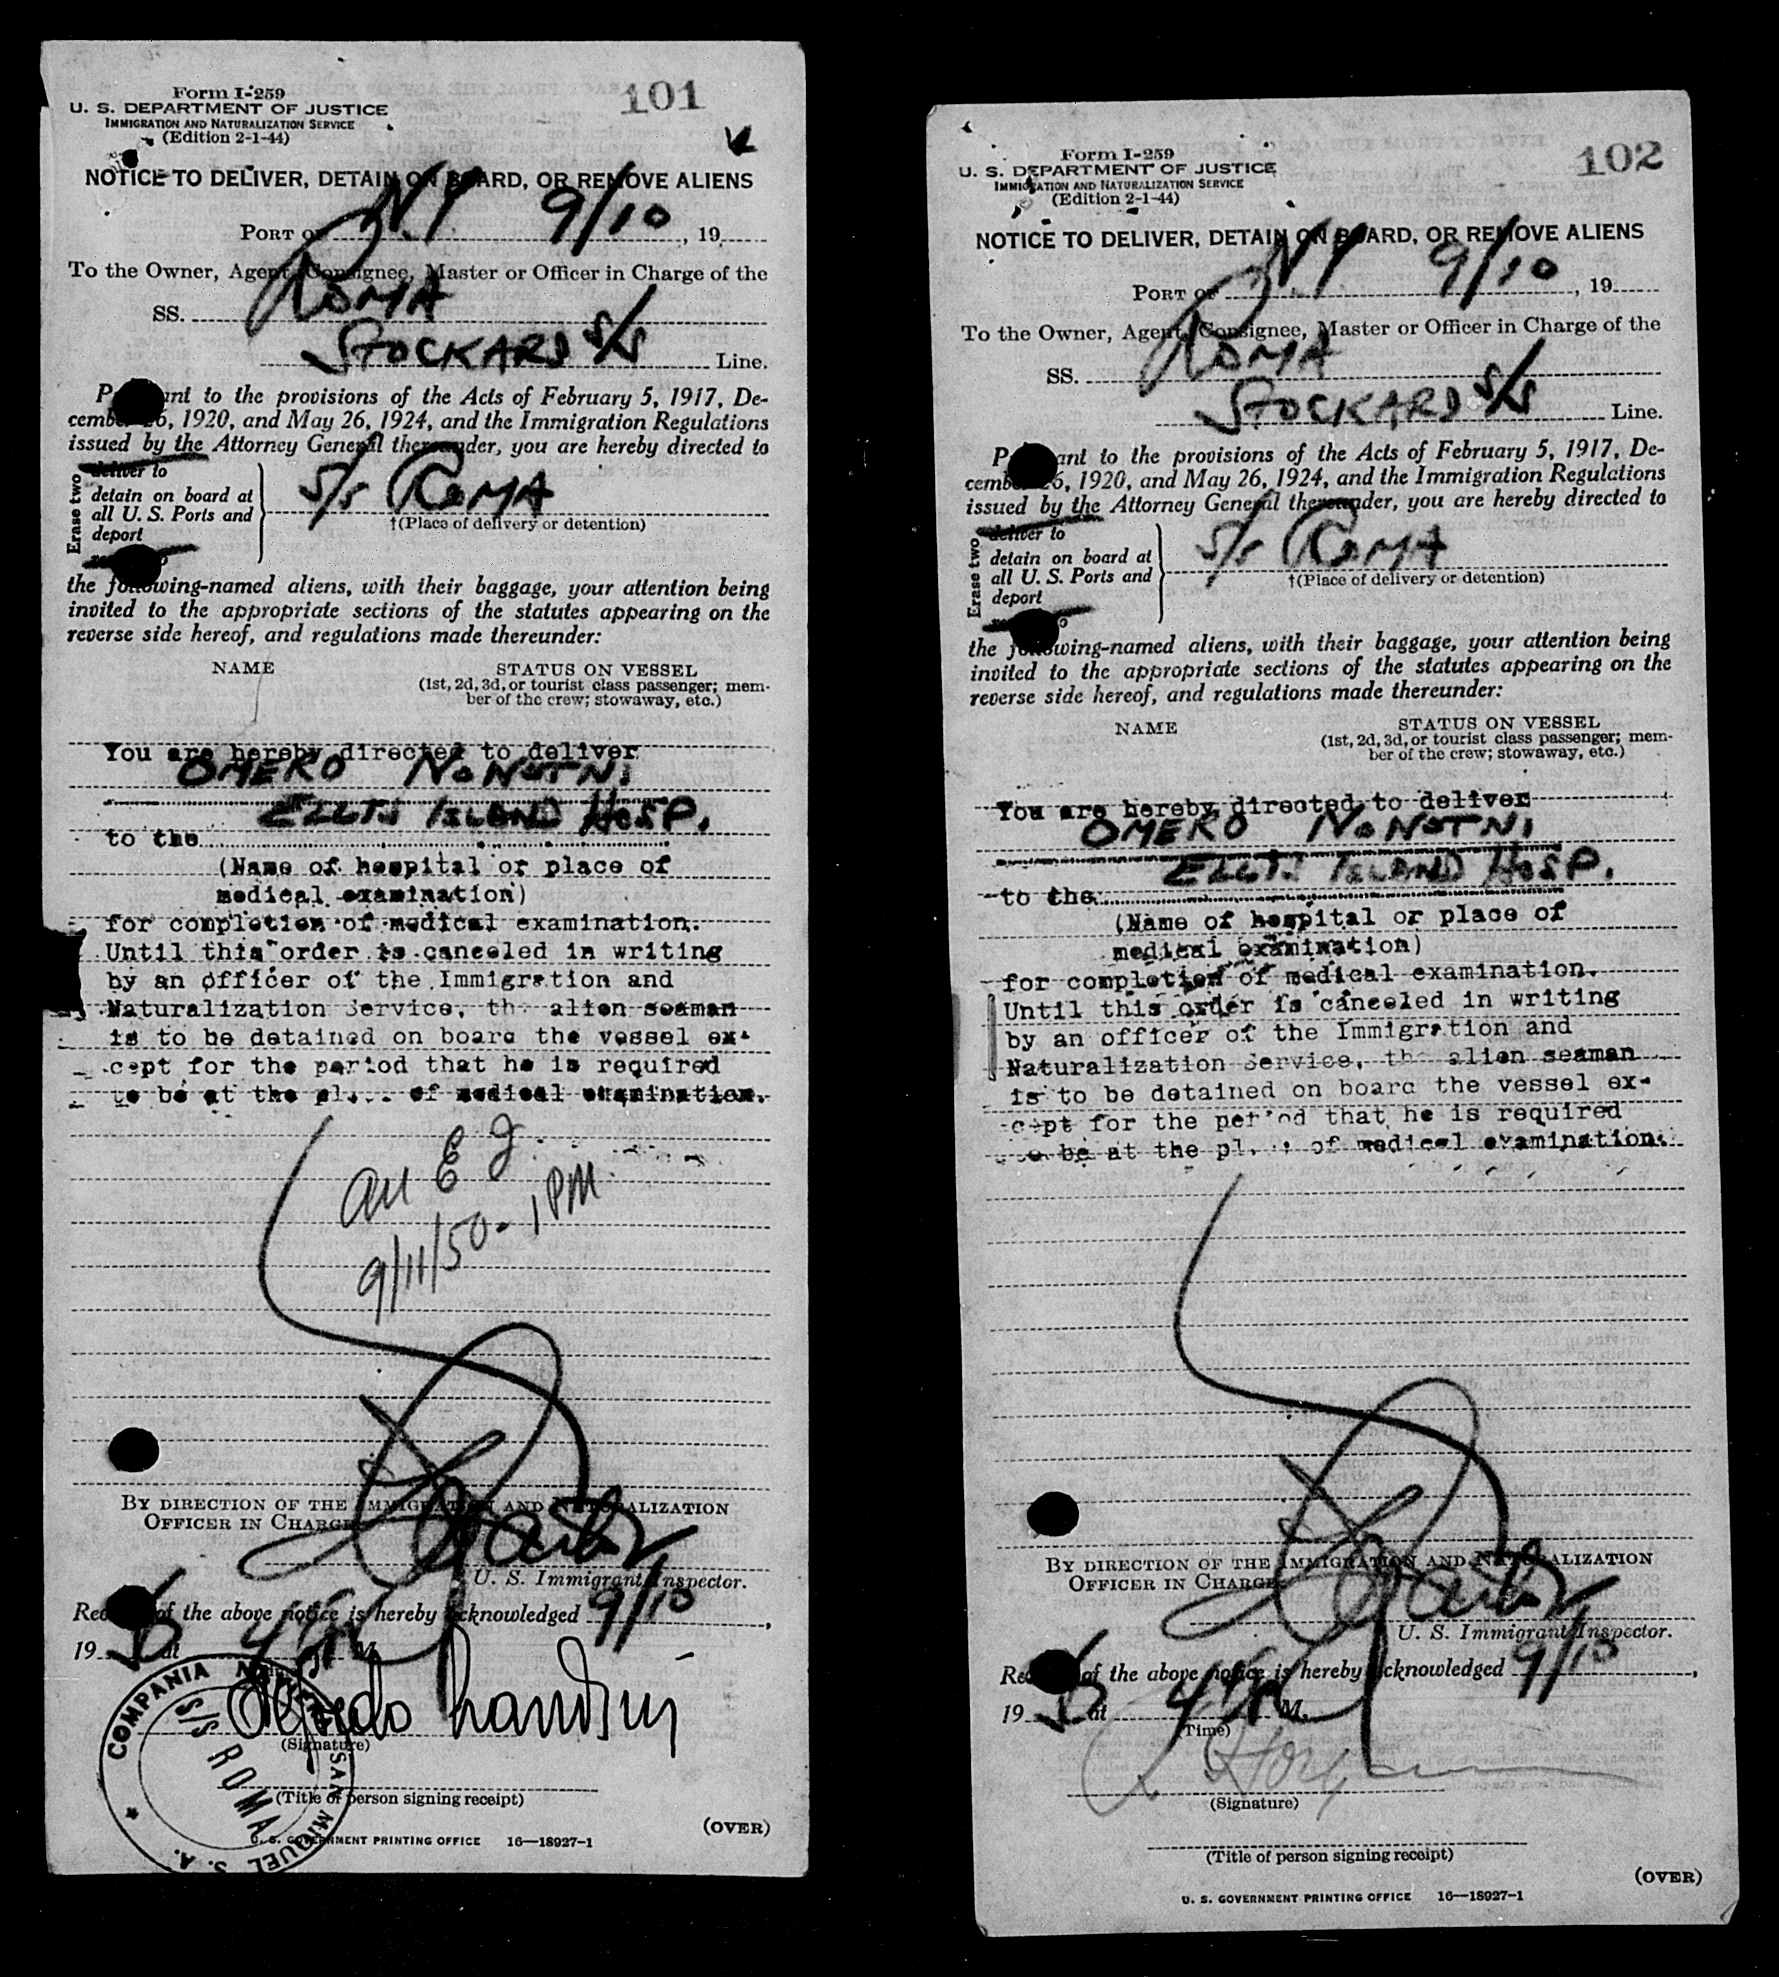 Form I-259
101
U. S. DEPARTMENT OF JUSTICE
IMMIGRATION AND NATURALIZATION SERVICE
(Edition 2-1-44)
NOTICE TO DELIVER, DETAIN ON BOARD, OR REMOVE ALIENS
PORT OF NY 9/10, 19
To the Owner, Agent, Consignee, Master or Officer in Charge of the
SS. ROMA
STOCKARD S/S Line.
Pursuant to the provisions of the Acts of February 5, 1917, De-
cember 26, 1920, and May 26, 1924, and the Immigration Regulations
issued by the Attorney General thereunder, you are hereby directed to
Erase two
deliver to
detain on board at
all U. S. Ports and
deport
S/S ROMA
†(Place of delivery or detention)
the following-named aliens, with their baggage, your attention being
invited to the appropriate sections of the statutes appearing on the
reverse side hereof, and regulations made thereunder:
NAME STATUS ON VESSEL
(1st, 2d, 3d, or tourist class passenger; mem-
ber of the crew; stowaway, etc.)
You are hereby directed to deliver
OMERO
ELLIS ISLAND HOSP.
to the
(Name of hospital or place of
medical examination)
for completion of medical examination.
Until this order is canceled in writing
by an officer of the Immigration and
Naturalization Service, the alien seaman
is to be detained on board the vessel ex-
cept for the period that he is required
to be at the place of medical examination.
9/11/50 - 1 PM
BY DIRECTION OF THE IMMIGRATION AND NATURALIZATION
OFFICER IN CHARGE
U. S. Immigrant Inspector.
Receipt of the above notice is hereby acknowledged 9/10,
19 at M.
(Signature)
(Title of person signing receipt)
COMPANIA NAVIERA SAN MIGUEL S. A.
S/S ROMA
(OVER)
U. S. GOVERNMENT PRINTING OFFICE 16—18927-1
Form I-259
102
U. S. DEPARTMENT OF JUSTICE
IMMIGRATION AND NATURALIZATION SERVICE
(Edition 2-1-44)
NOTICE TO DELIVER, DETAIN ON BOARD, OR REMOVE ALIENS
PORT OF NY 9/10, 19
To the Owner, Agent, Consignee, Master or Officer in Charge of the
SS. ROMA
STOCKARD S/S Line.
Pursuant to the provisions of the Acts of February 5, 1917, De-
cember 26, 1920, and May 26, 1924, and the Immigration Regulations
issued by the Attorney General thereunder, you are hereby directed to
Erase two
deliver to
detain on board at
all U. S. Ports and
deport
S/S ROMA
†(Place of delivery or detention)
the following-named aliens, with their baggage, your attention being
invited to the appropriate sections of the statutes appearing on the
reverse side hereof, and regulations made thereunder:
NAME STATUS ON VESSEL
(1st, 2d, 3d, or tourist class passenger; mem-
ber of the crew; stowaway, etc.)
You are hereby directed to deliver
OMERO
ELLIS ISLAND HOSP.
to the
(Name of hospital or place of
medical examination)
for completion of medical examination.
Until this order is canceled in writing
by an officer of the Immigration and
Naturalization Service, the alien seaman
is to be detained on board the vessel ex-
cept for the period that he is required
to be at the place of medical examination.
BY DIRECTION OF THE IMMIGRATION AND NATURALIZATION
OFFICER IN CHARGE
U. S. Immigrant Inspector.
Receipt of the above notice is hereby acknowledged 9/10,
19 at M.
(Time)
(Signature)
(Title of person signing receipt)
(OVER)
U. S. GOVERNMENT PRINTING OFFICE 16—18927-1